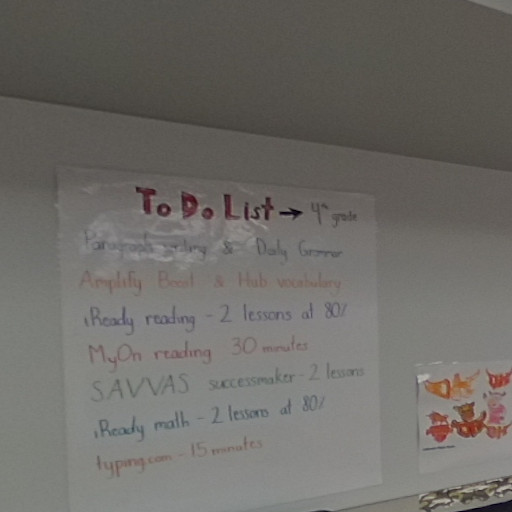 To Do List → 4th grade
Paragraph writing & Daily Grammar
Amplify Boost & Hub vocabulary
iReady reading - 2 lessons at 80%
MyOn reading 30 minutes
SAVVAS successmaker - 2 lessons
iReady math - 2 lessons at 80%
typing.com - 15 minutes